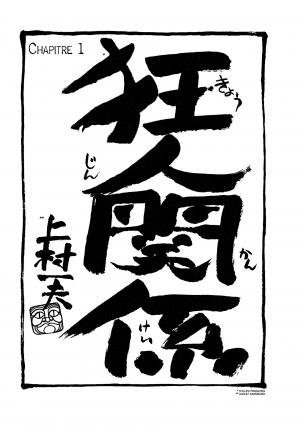 CHAPITRE 1
狂人関係
きょう
じん
かん
けい
上村一夫